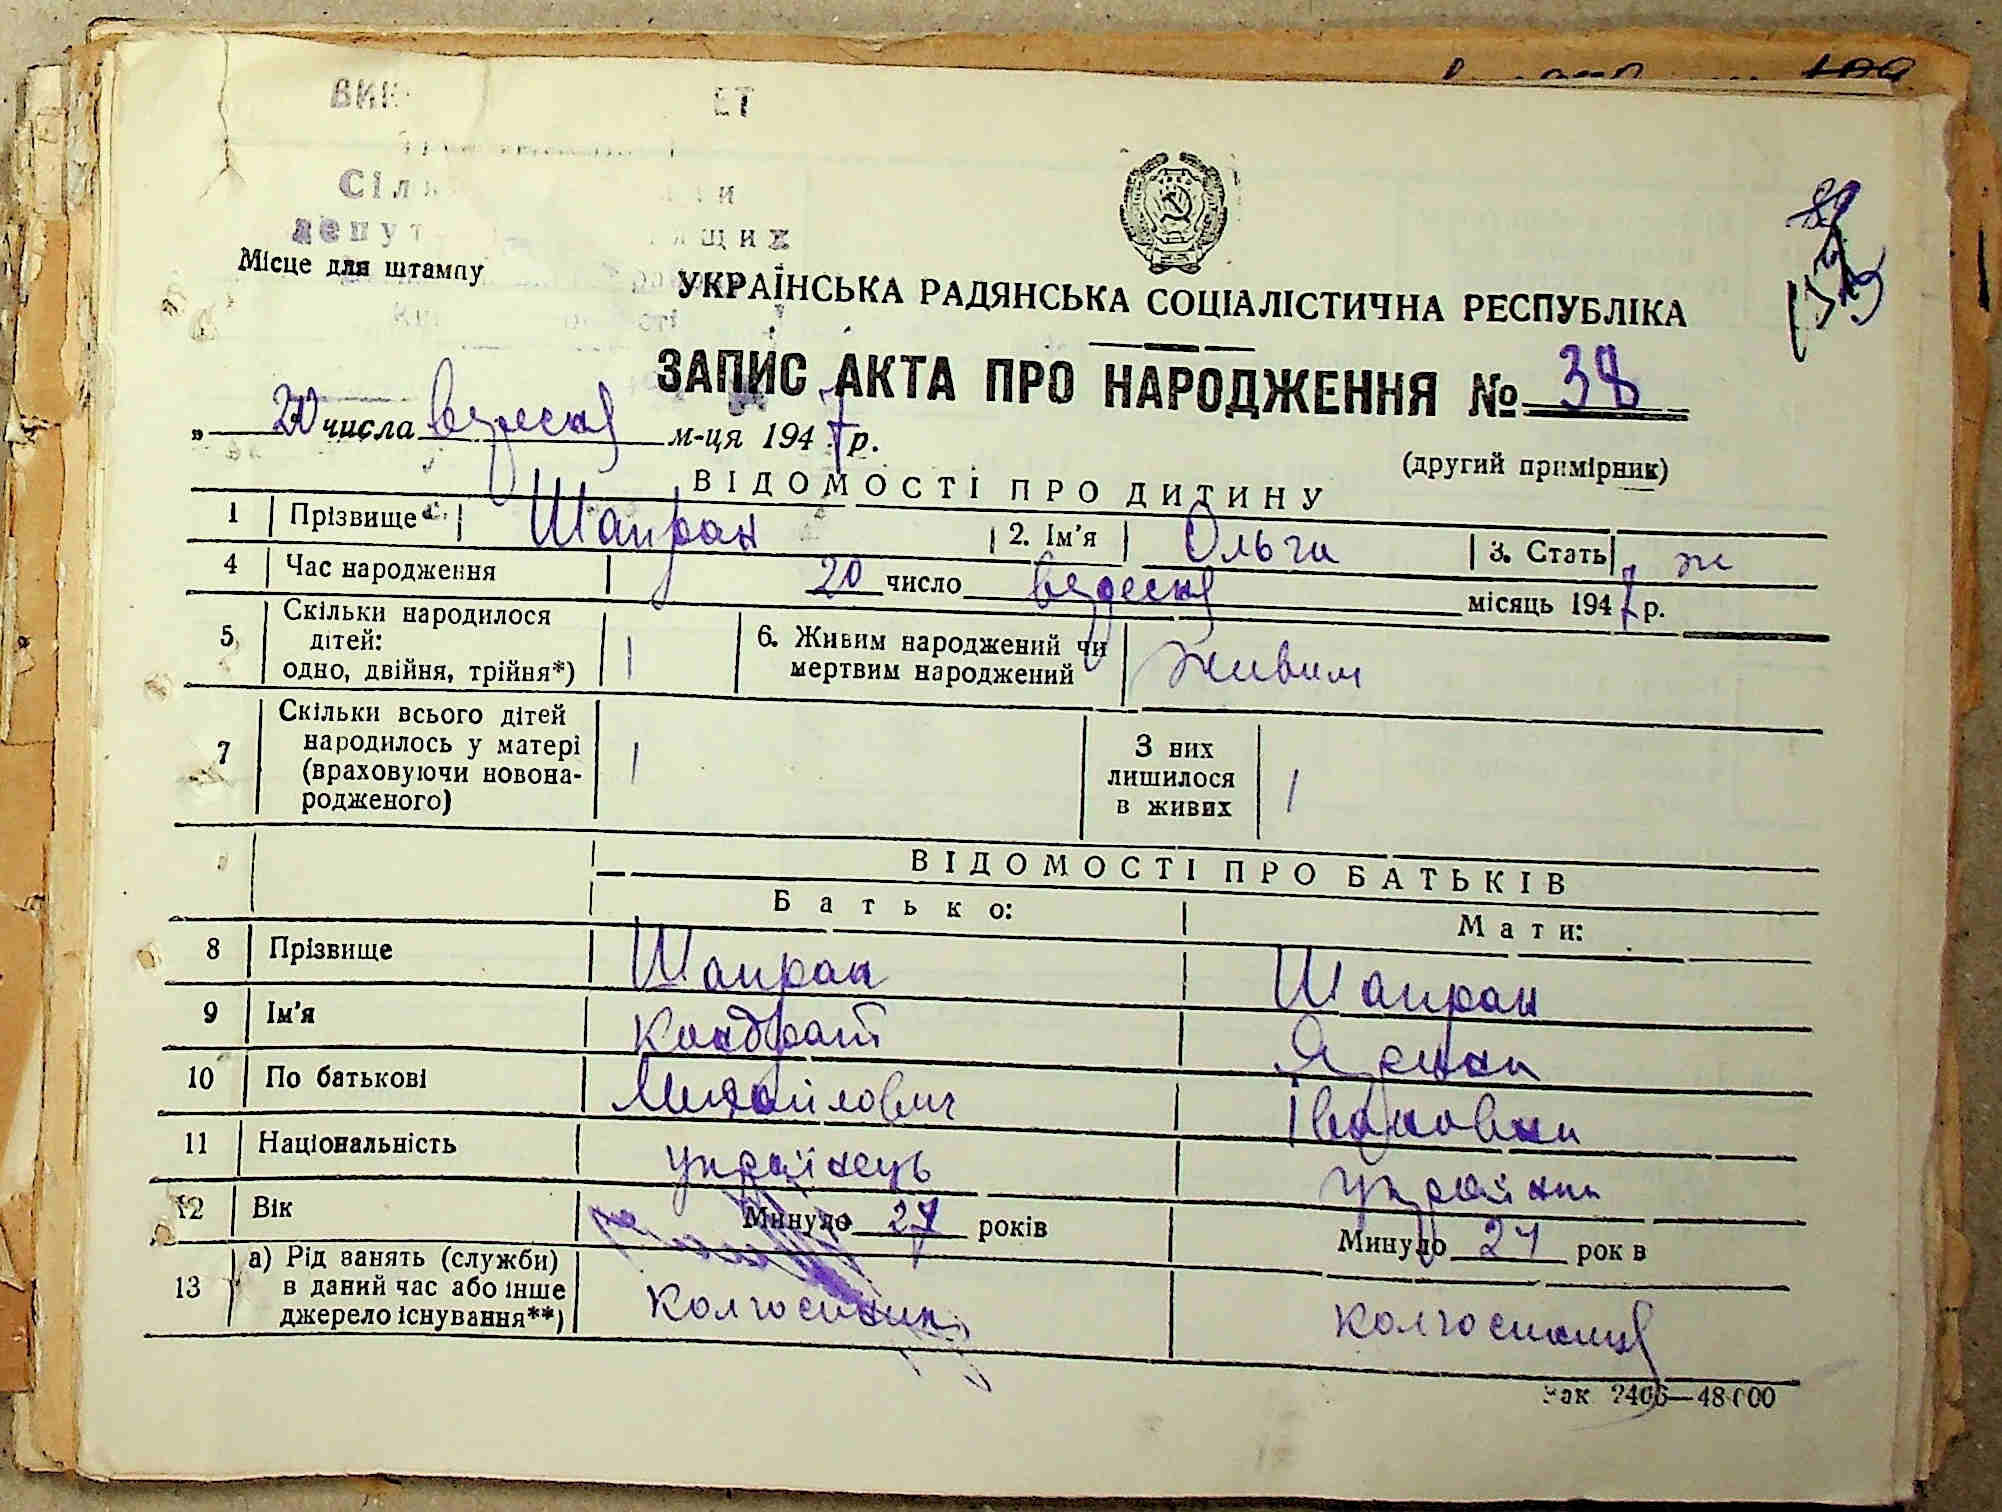 Місце для штампу
УКРАЇНСЬКА РАДЯНСЬКА СОЦІАЛІСТИЧНА РЕСПУБЛІКА
ЗАПИС АКТА ПРО НАРОДЖЕННЯ № 38
„ 20 числа вересня м-ця 1947 р.
(другий примірник)
ВІДОМОСТІ ПРО ДИТИНУ
1 Прізвище Шапран 2. Ім'я Ольга 3. Стать ж
4 Час народження 20 число вересня місяць 1947 р.
5 Скільки народилося дітей: одно, двійня, трійня*) 1 6. Живим народжений чи мертвим народжений Живим
7 Скільки всього дітей народилось у матері (враховуючи новона-родженого) 1 З них лишилося в живих 1
ВІДОМОСТІ ПРО БАТЬКІВ
Батько: Мати:
8 Прізвище Шапран Шапран
9 Ім'я Кондрат
10 По батькові Михайлович Івановна
11 Національність українець українка
12 Вік Минуло 27 років Минуло рок в
13 а) Рід занять (служби) в даний час або інше джерело існування**) Колгоспник колгоспниця